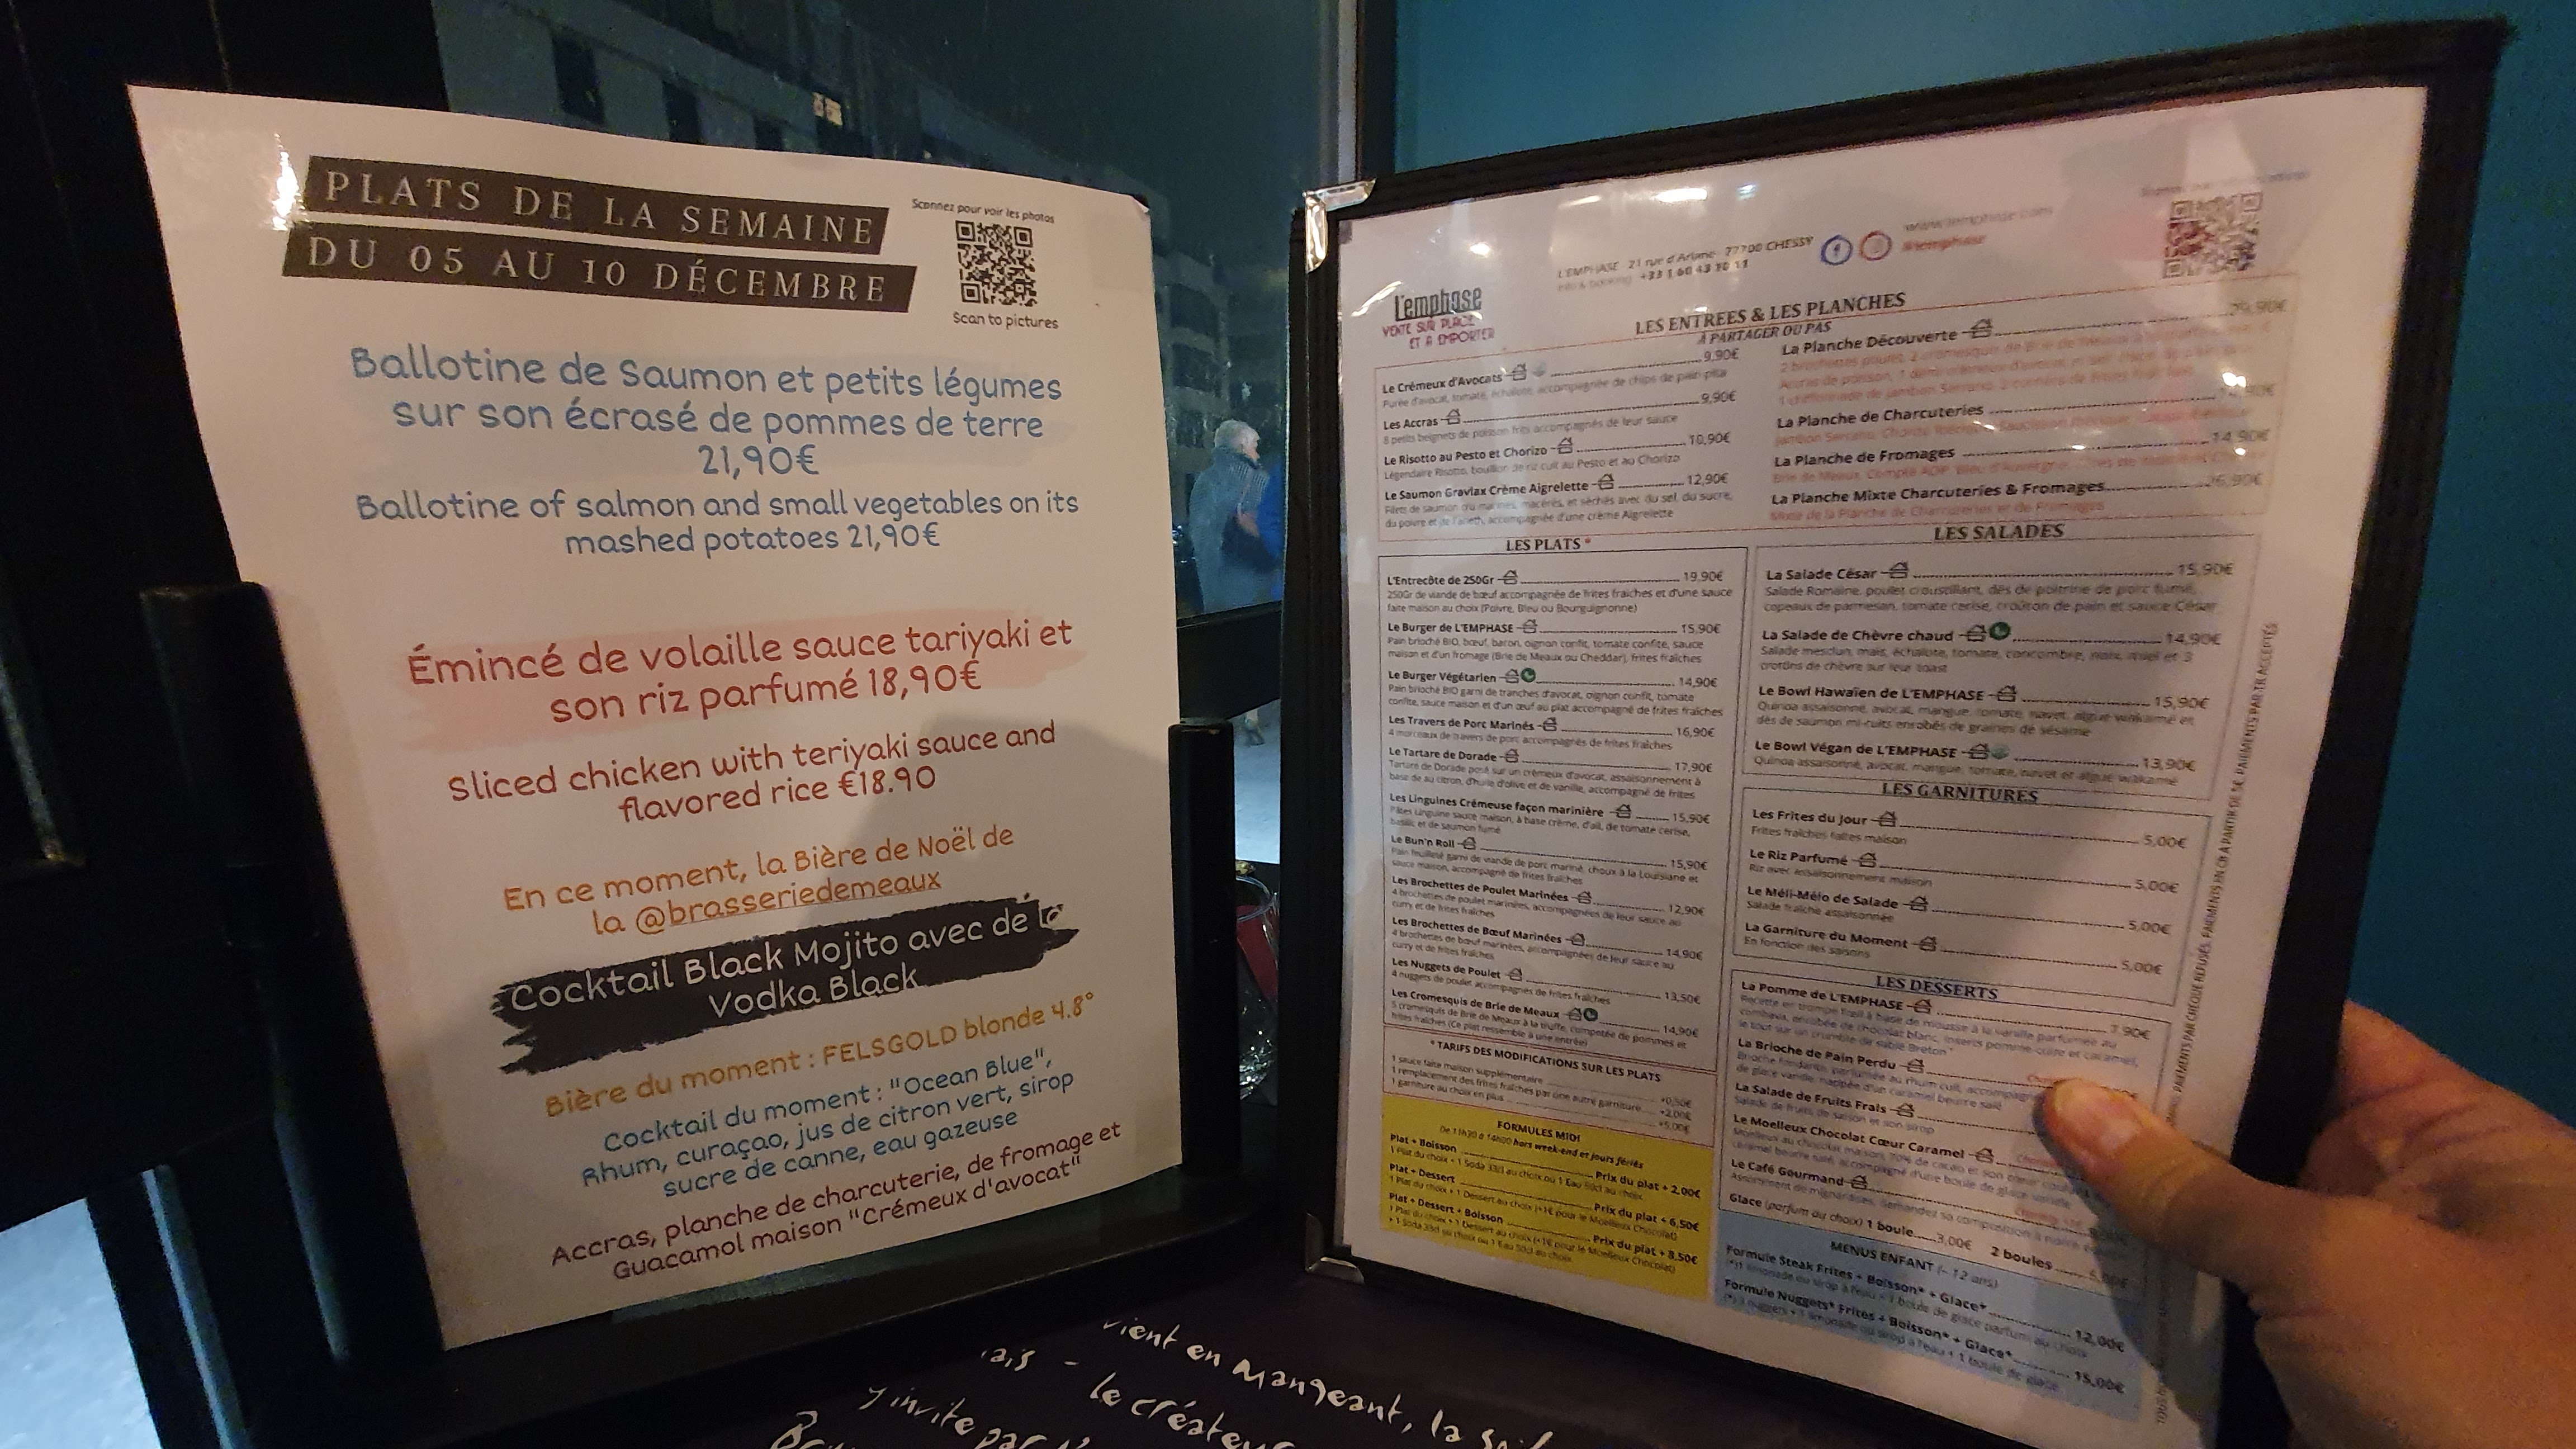 PLATS DE LA SEMAINE
DU 05 AU 10 DÉCEMBRE
Scannez pour voir les photos
Scan to pictures
Ballotine de Saumon et petits légumes
sur son écrasé de pommes de terre
21,90€
Ballotine of salmon and small vegetables on its
mashed potatoes 21,90€
Émincé de volaille sauce tariyaki et
son riz parfumé 18,90€
Sliced chicken with teriyaki sauce and
flavored rice €18.90
En ce moment, la Bière de Noël de
la @brasseriedemeaux
Cocktail Black Mojito avec de la
Vodka Black
Bière du moment : FELSGOLD blonde 4.8°
Cocktail du moment : "Ocean Blue",
Rhum, curaçao, jus de citron vert, sirop
sucre de canne, eau gazeuse
Accras, planche de charcuterie, de fromage et
Guacamol maison "Crémeux d'avocat"
l'emphase
VENTE SUR PLACE
ET A EMPORTER
L'EMPHASE 21 rue d'Ariane 77700 CHESSY
www.lemphase.com
#lemphase
LES ENTREES & LES PLANCHES
A PARTAGER OU PAS
Le Crémeux d'Avocats 9,90€
Purée d'avocat, tomate, échalote, accompagnée de chips de pain pita
Les Accras 9,90€
8 petits beignets de poisson frits accompagnés de leur sauce
Le Risotto au Pesto et Chorizo 10,90€
Légendaire Risotto, bouillon de riz cuit au Pesto et au Chorizo
Le Saumon Gravlax Crème Aigrelette 12,90€
Filets de saumon cru marinés, macérés, et séchés avec du sel, du sucre,
du poivre et de l'aneth, accompagnée d'une crème Aigrelette
La Planche Découverte 29,90€
La Planche de Charcuteries
La Planche de Fromages 14,90€
La Planche Mixte Charcuteries & Fromages 26,90€
Mixte de la Planche de Charcuteries et de Fromages
LES PLATS *
L'Entrecôte de 250Gr 19,90€
250Gr de viande de bœuf accompagnée de frites fraîches et d'une sauce
faite maison au choix (Poivre, Bleu ou Bourguignonne)
Le Burger de L'EMPHASE 15,90€
Pain brioché BIO, bœuf, bacon, oignon confit, tomate confite, sauce
maison et d'un fromage (Brie de Meaux ou Cheddar), frites fraîches
Le Burger Végétarien 14,90€
Pain brioché BIO garni de tranches d'avocat, oignon confit, tomate
confite, sauce maison et d'un œuf au plat accompagné de frites fraîches
Les Travers de Porc Marinés 16,90€
4 morceaux de travers de porc accompagnés de frites fraîches
Le Tartare de Dorade 17,90€
Tartare de Dorade posé sur un crémeux d'avocat, assaisonnement à
base de au citron, d'huile d'olive et de vanille, accompagné de frites
Les Linguines Crémeuse façon marinière 15,90€
Pâtes Linguine sauce maison, à base crème, d'ail, de tomate cerise,
basilic et de saumon fumé
Le Bun'n Roll 15,90€
Pain feuilleté garni de viande de porc mariné, choux à la Louisiane et
sauce maison, accompagné de frites fraîches
Les Brochettes de Poulet Marinées 12,90€
4 brochettes de poulet marinées, accompagnées de leur sauce au
curry et de frites fraîches
Les Brochettes de Bœuf Marinées 14,90€
4 brochettes de bœuf marinées, accompagnées de leur sauce au
curry et de frites fraîches
Les Nuggets de Poulet 13,50€
4 nuggets de poulet accompagnés de frites fraîches
Les Cromesquis de Brie de Meaux 14,90€
5 cromesquis de Brie de Meaux à la truffe, compotée de pommes et
frites fraîches (Ce plat ressemble à une entrée)
* TARIFS DES MODIFICATIONS SUR LES PLATS
1 sauce faite maison supplémentaire +0,50€
1 remplacement des frites fraîches par une autre garniture +2,00€
1 garniture au choix en plus +5,00€
FORMULES MIDI
De 11h30 à 14h00 hors week-end et jours fériés
Plat + Boisson Prix du plat + 2,00€
1 Plat du choix + 1 Soda 33cl au choix ou 1 Eau 50cl au choix
Plat + Dessert Prix du plat + 6,50€
1 Plat du choix + 1 Dessert au choix (+1€ pour le Moelleux Chocolat)
Plat + Dessert + Boisson Prix du plat + 8,50€
1 Plat du choix + 1 Dessert au choix (+1€ pour le Moelleux Chocolat)
+ 1 Soda 33cl au choix ou 1 Eau 50cl au choix
LES SALADES
La Salade César 15,90€
Salade Romaine, poulet croustillant, dés de poitrine de porc fumé,
copeaux de parmesan, tomate cerise, croûton de pain et sauce César
La Salade de Chèvre chaud 14,90€
Salade mesclun, maïs, échalote, tomate, concombre, noix, miel et 3
crottins de chèvre sur leur toast
Le Bowl Hawaïen de L'EMPHASE 15,90€
Quinoa assaisonné, avocat, mangue, tomate, navet, algue wakamé et
dés de saumon mi-cuits enrobés de graines de sésame
Le Bowl Végan de L'EMPHASE 13,90€
Quinoa assaisonné, avocat, mangue, tomate, navet et algue wakamé
LES GARNITURES
Les Frites du Jour 5,00€
Frites fraîches faites maison
Le Riz Parfumé 5,00€
Riz avec assaisonnement maison
Le Méli-Mélo de Salade 5,00€
Salade fraîche assaisonnée
La Garniture du Moment 5,00€
En fonction des saisons
LES DESSERTS
La Pomme de L'EMPHASE 7,90€
Recette en trompe l'œil à base de mousse à la vanille parfumée au
combava, enrobée de chocolat blanc, inserts pomme-cuite et caramel,
le tout sur un crumble de sablé Breton
La Brioche de Pain Perdu
Brioche fondante parfumée au rhum cuit, accompagnée
de glace vanille, nappée d'un caramel beurre salé
La Salade de Fruits Frais
Salade de fruits de saison et son sirop
Le Moelleux Chocolat Cœur Caramel
Le Café Gourmand
Glace (parfum au choix) 1 boule 3,00€ 2 boules
MENUS ENFANT (- 12 ans)
Formule Steak Frites + Boisson* + Glace* 12,00€
(*) 1 limonade ou sirop à l'eau + 1 boule de glace parfum au choix
Formule Nuggets* Frites + Boisson* + Glace* 15,00€
PAIEMENTS PAR CHEQUE REFUSÉS. PAIEMENTS EN CB A PARTIR DE 5€. PAIEMENTS PAR TR ACCEPTÉS
vient en mangeant, la
ais - le créateur
y invite par